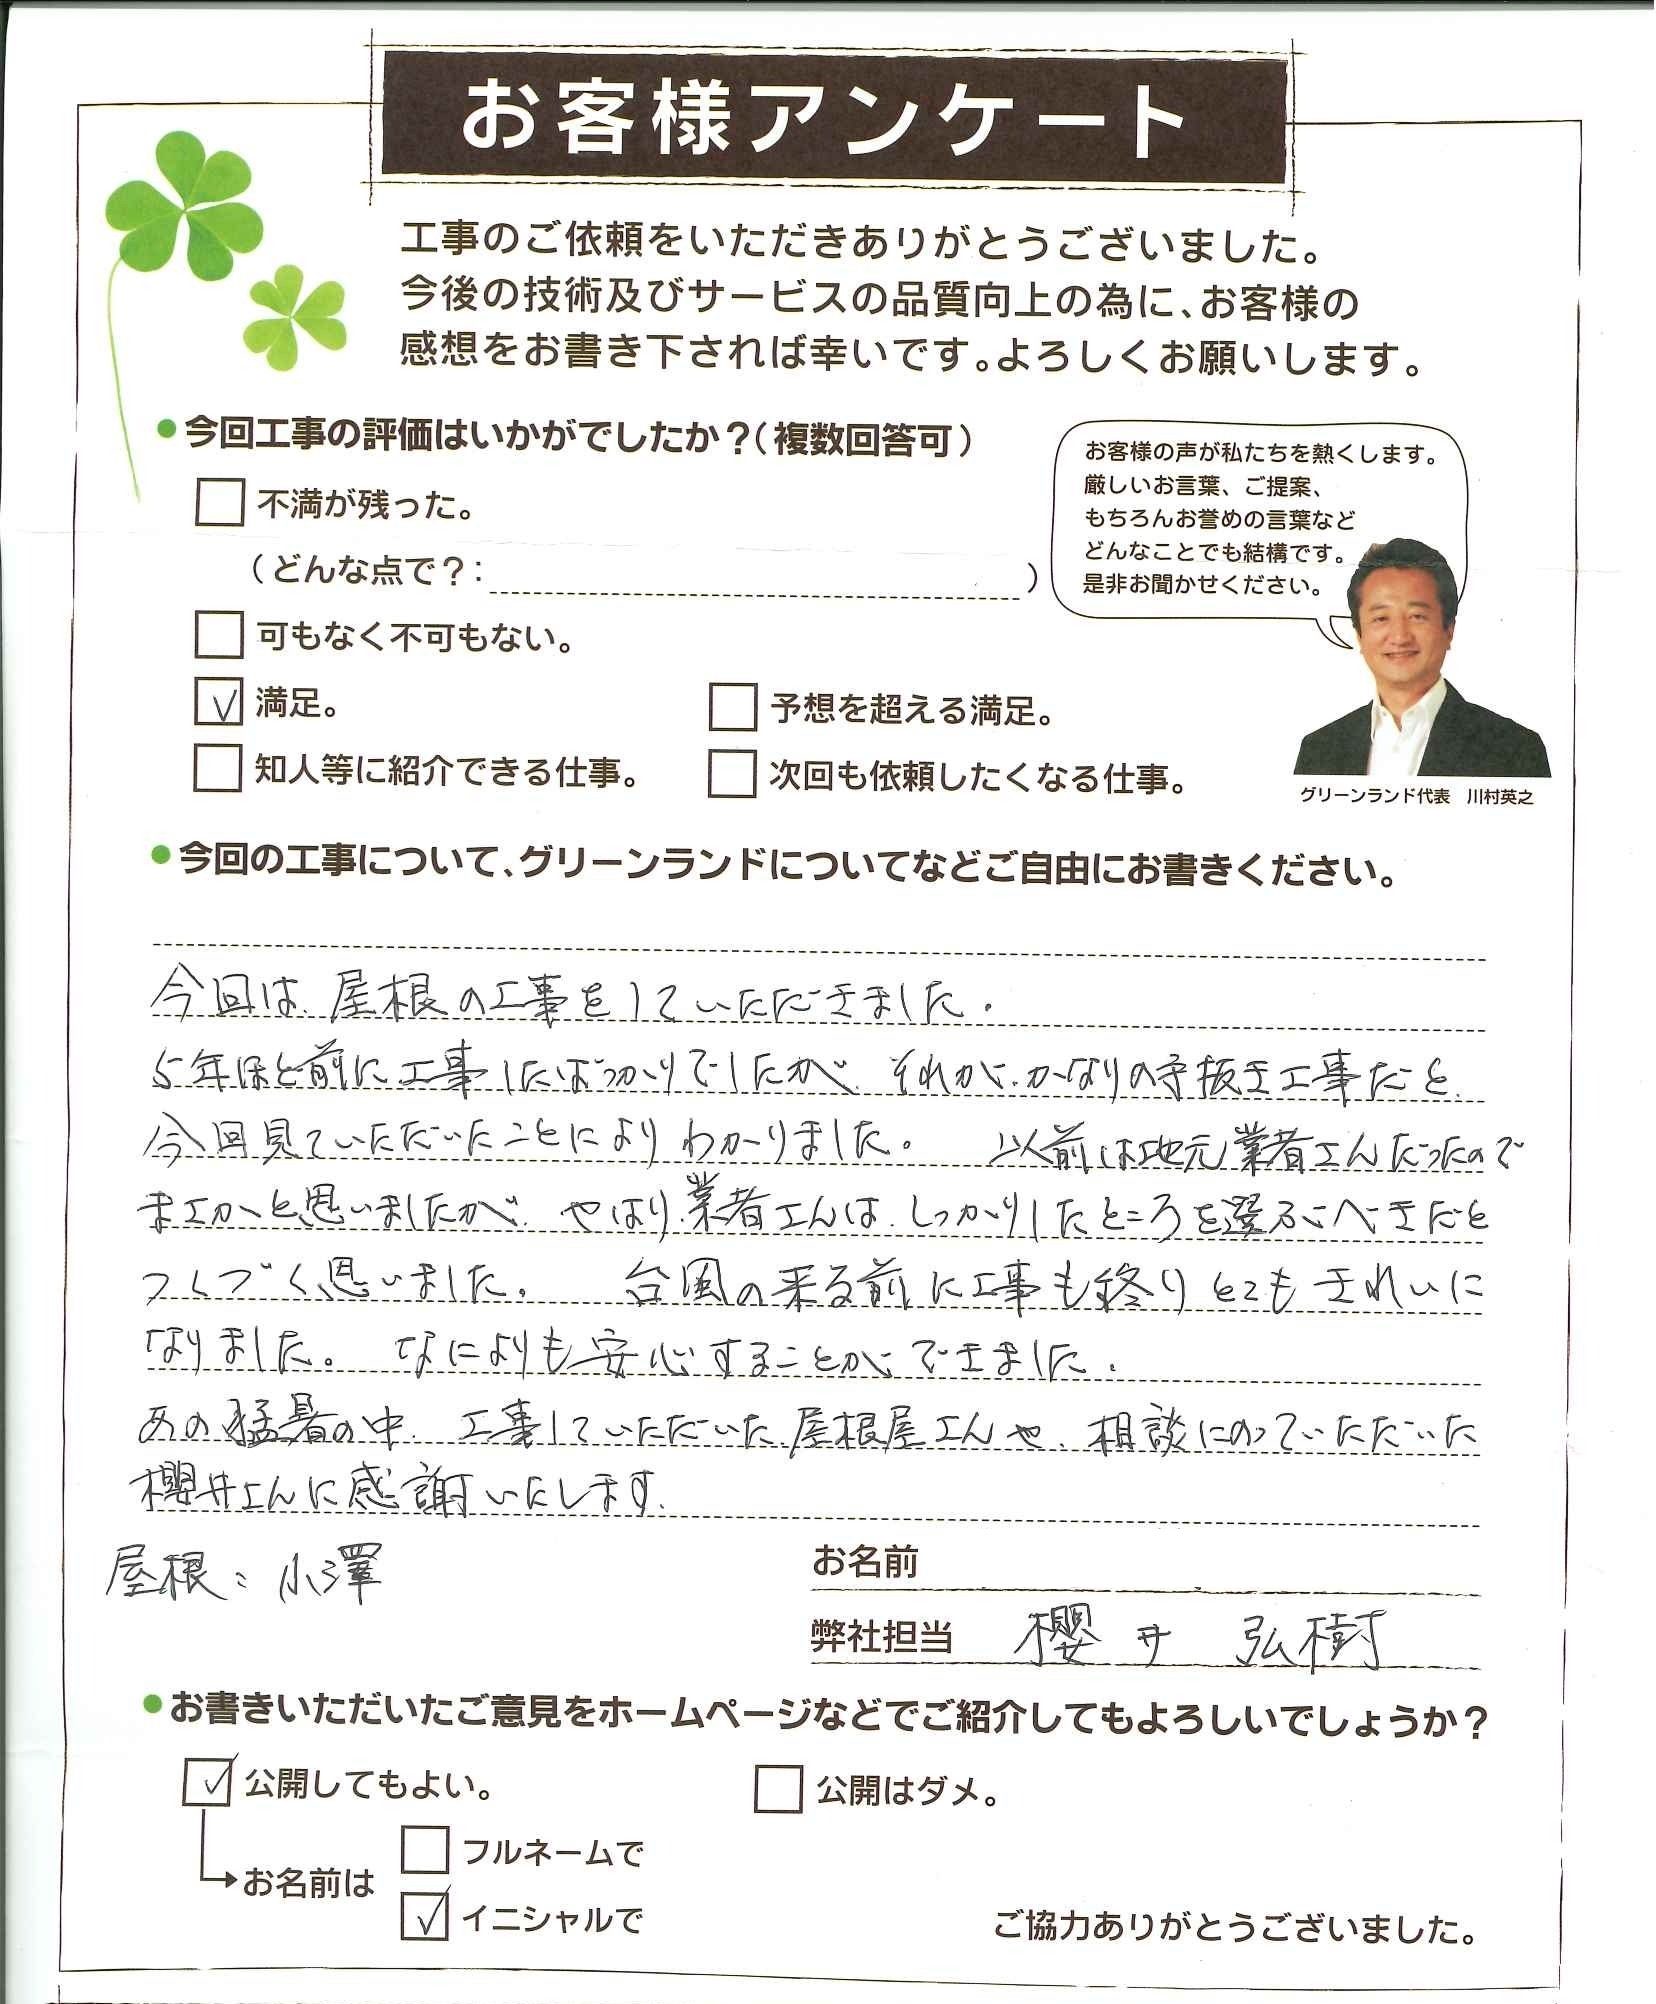 お客様アンケート
工事のご依頼をいただきありがとうございました。
今後の技術及びサービスの品質向上の為に、お客様の
感想をお書き下されば幸いです。よろしくお願いします。
●今回工事の評価はいかがでしたか?(複数回答可)
不満が残った。
(どんな点で?: )
可もなく不可もない。
満足。
予想を超える満足。
知人等に紹介できる仕事。
次回も依頼したくなる仕事。
お客様の声が私たちを熱くします。
厳しいお言葉、ご提案、
もちろんお誉めの言葉など
どんなことでも結構です。
是非お聞かせください。
グリーンランド代表 川村英之
●今回の工事について、グリーンランドについてなどご自由にお書きください。
今回は、屋根の工事をしていただきました。
5年ほど前に工事したばっかりでしたが、それが、かなりの手抜き工事だと、
今回見ていただいたことによりわかりました。 以前は地元業者さんだったので
まさかと思いましたが、やはり、業者さんは、しっかりしたところを選ぶべきだと
つくづく思いました。 台風の来る前に工事も終りとてもきれいに
なりました。 なによりも安心することができました。
あの猛暑の中、工事していただいた、屋根屋さんや、相談にのっていただいた
櫻井さんに感謝いたします。
屋根:小澤
お名前
弊社担当 櫻井 弘樹
●お書きいただいたご意見をホームページなどでご紹介してもよろしいでしょうか?
公開してもよい。
公開はダメ。
お名前は
フルネームで
イニシャルで
ご協力ありがとうございました。